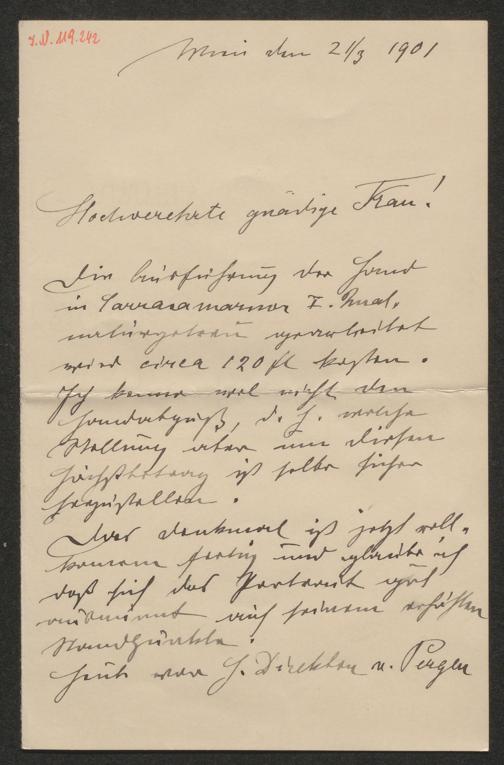 J.N. 119.242
Wien den 21/3 1901
Hochverehrte gnädige Frau!
Die Ausführung der Hand
in Carraramarmor I. Qual.
naturgetreu gearbeitet
wird circa 120 fl kosten.
Ich kenne wol nicht den
Handabguß, d. h. welche
Stellung aber um diesen
Höchstbetrag ist selbe sicher
herzustellen.
Das Denkmal ist jetzt voll-
komen fertig und glaube ich
daß sich das Portrait gut
ausnimt auf seinem erhöhten
Standpunkte.
Heute war H. Direktor v. Perger